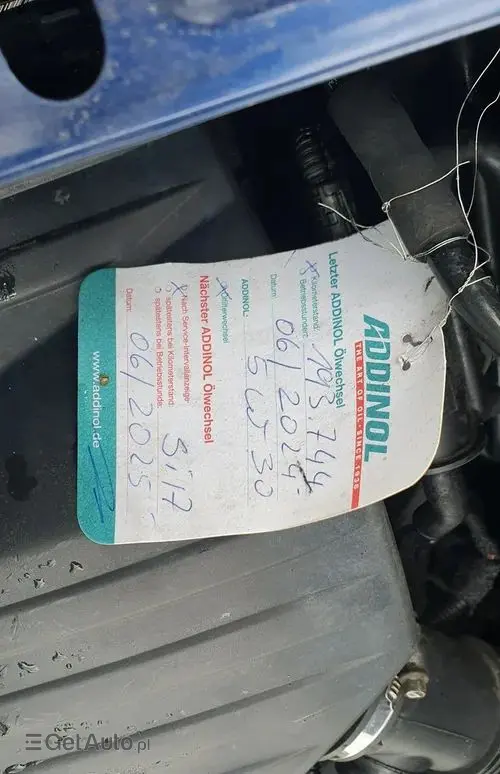 ADDINOL
THE ART OF OIL · SINCE 1936
Letzter ADDINOL Ölwechsel
Kilometerstand: 193.744
Betriebsstunden:
Datum: 06/2024
ADDINOL: 5W30
Filterwechsel
Nächster ADDINOL Ölwechsel
Nach Service-Intervallanzeige
spätestens bei Kilometerstand:
spätestens bei Betriebsstunde:
Datum: 06/2025
www.addinol.de
GetAuto.pl